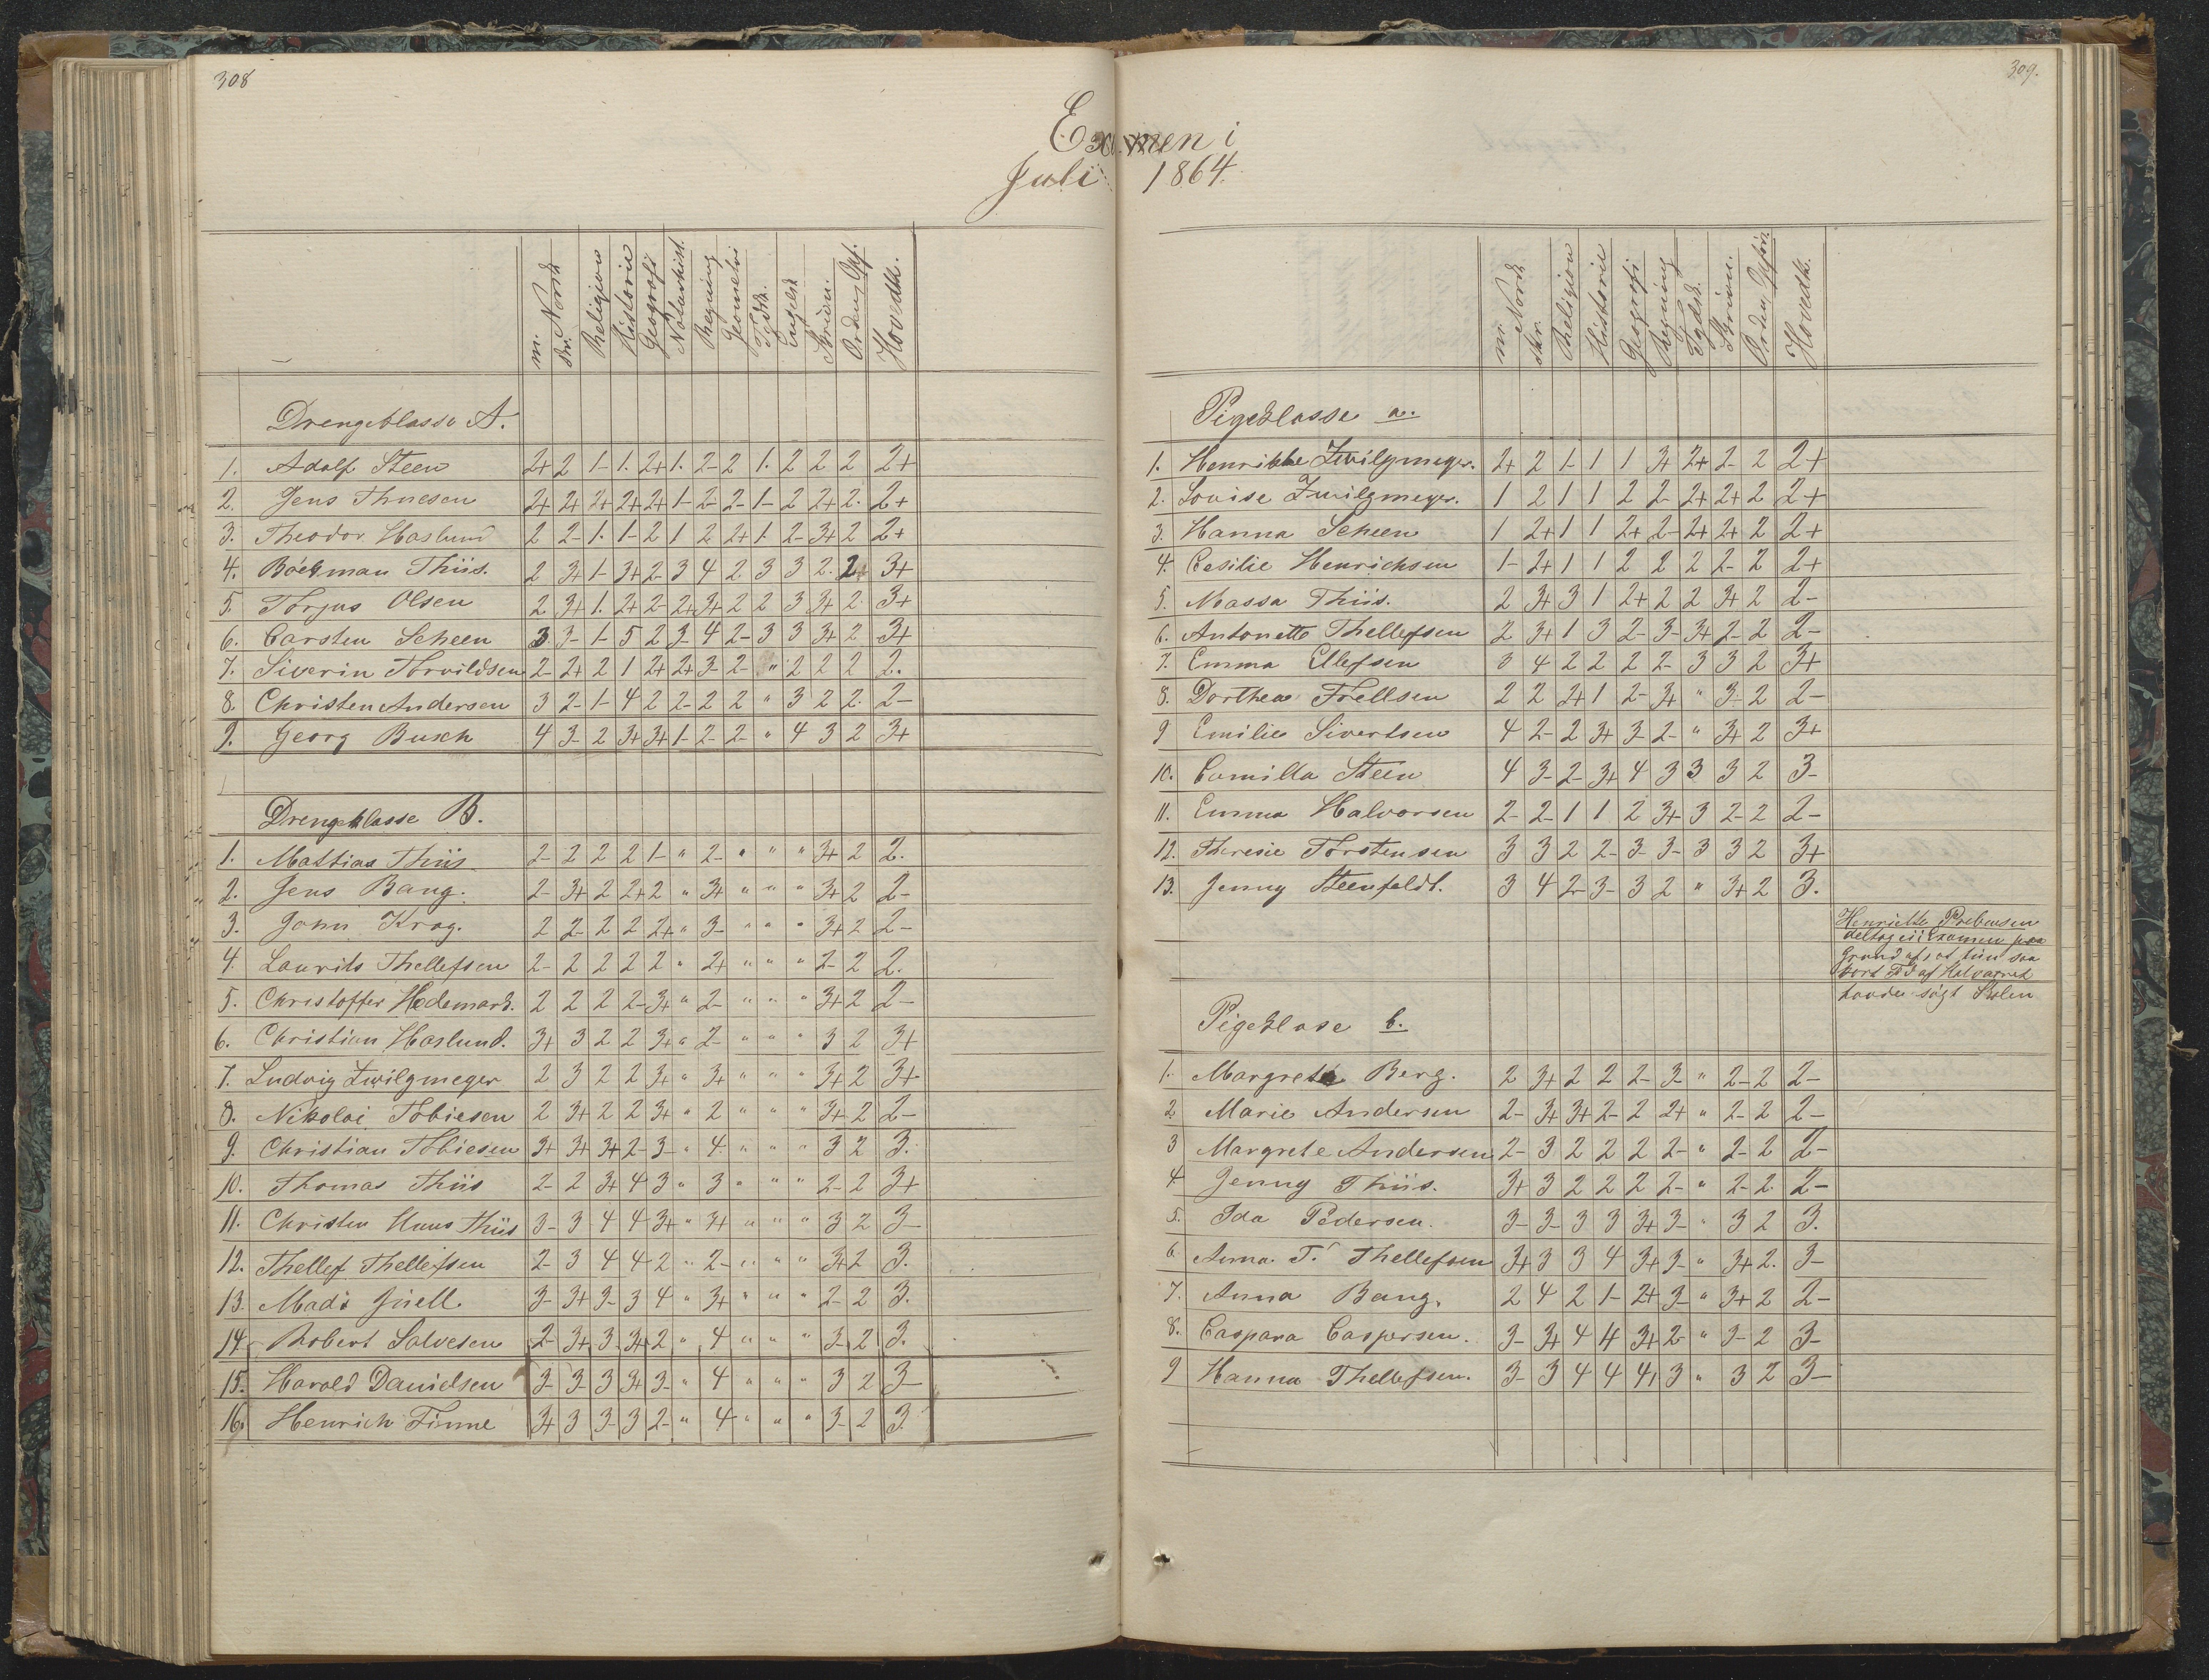 308
Examen i
Juli 1864.
m. Norsk skr. Norsk Religion Historie Geografi Naturhist. Regning Geometri Tydsk. Engelsk Skrivn. Orden Opf. Hovedk.
Drengeklasse A.
1. Adolf Steen 2+ 2 1- 1. 2+ 1. 2- 2 1. 2 2 2 2+
2. Jens Thuesen 2+ 2+ 2+ 2+ 2+ 1- 2- 2- 1- 2 2+ 2. 2+
3. Theodor Haslund 2 2- 1. 1- 2 1 2 2+ 1. 2- 3+ 2 2+
4. Böckman Thiis. 2 3+ 1- 3+ 2- 3 4 2 3 3 2. 2 3+
5. Torjus Olsen 2 3+ 1. 2+ 2- 2+ 3+ 2 2 3 3+ 2. 3+
6. Carsten Scheen 3. 3- 1- 5 2 3- 4 2- 3 3 3+ 2 3+
7. Siverin Torvildsen 2- 2+ 2 1 2+ 2+ 3- 2- " 2 2 2 2.
8. Christen Andersen 3 2- 1- 4 2 2- 2 2 " 3 2 2. 2-
9. Georg Busch 4 3- 2 3+ 3+ 1- 2- 2- " 4 3 2 3+
Drengeklasse B.
1. Mattias Thiis 2- 2 2 2 1- " 2- " " " 3+ 2 2.
2. Jens Bang. 2- 3+ 2 2+ 2 " 3+ " " " 3+ 2 2-
3. John Krog. 2 2- 2 2 2+ " 3- " " " 3+ 2 2-
4. Laurits Thellefsen 2- 2 2 2 2 " 2+ " " " 2- 2 2.
5. Christoffer Hedemark. 2 2 2 2- 3+ " 2- " " " 3+ 2 2-
6. Christian Haslund. 3+ 3 2 2 3+ " 2- " " " 3 2 3+
7. Ludvig Zwilgmeyer 2 3 2 2 3+ " 3+ " " " 3+ 2 3+
8. Nikolai Tobiesen 2 3+ 2 2 3+ " 2 " " " 3+ 2 2-
9. Christian Tobiesen 3+ 3+ 3+ 2- 3- " 4 " " " 3 2 3.
10. Thomas Thiis 2- 2 3+ 4 3 " 3 " " " 2- 2 3+
11. Christen Hans Thiis 3- 3 4 4 3+ " 3+ " " " 3 2 3-
12. Thellef Thellefsen 2- 3 4 4 2 " 2- " " " 3+ 2 3.
13. Mads Juell. 3- 3+ 3- 3 4 " 3+ " " " 2- 2 3.
14. Robert Salvesen 2- 3+ 3 3+ 2 " 4 " " " 3- 2 3.
15. Harald Danielsen 3- 3- 3 3+ 3- " 4 " " " 3 2 3-
16. Henrich Finne 3+ 3 3- 3 2- " 4 " " " 3- 2 3.
309.
m. Norsk skr. Religion Historie Geografi Regning Tydsk. Skrivn. Orden Opför. Hovedk.
Pigeklasse a.
1. Henrikke Zwilgmeyer. 2+ 2 1- 1 1 3+ 2+ 2- 2 2+
2. Lovise Zwilgmeyer. 1 2 1 1 2 2- 2+ 2+ 2 2+
3. Hanna Scheen 1 2+ 1 1 2+ 2- 2+ 2+ 2 2+
4. Cesilie Henrichsen 1- 2+ 1 1 2 2 2 2- 2 2+
5. Massa Thiis. 2 3+ 3 1 2+ 2 2 3+ 2 2-
6. Antonette Thellefsen 2 3+ 1 3 2- 3- 3+ 2- 2 2-
7. Emma Ellefsen 3 4 2 2 2 2- 3 3 2 3+
8. Dorthea Föellsen 2 2 2+ 1 2- 3+ " 3- 2 2-
9 Emilie Sivertsen 4 2- 2 3+ 3- 2- " 3+ 2 3+
10. Camilla Steen 4 3- 2- 3+ 4 3 3 3 2 3-
11. Emma Halvorsen 2- 2- 1 1 2 3+ 3 2- 2 2-
12. Theresie Torstensen 3 3 2 2- 3- 3- 3 3 2 3+
13. Jenny Steenfeldt. 3 4 2- 3- 3 2 " 3+ 2 3.
Henriette Prebensen
deltog ei i Examen paa
Grund af, at hun saa
kort Tid af Halvaaret
havde sögt Skolen
Pigeklase b.
1. Margrete Berg. 2 3+ 2 2 2- 3- " 2- 2 2-
2. Marie Andersen 2- 3+ 3+ 2- 2 2+ " 2- 2 2-
3 Margrete Andersen 2- 3 2 2 2 2- " 2- 2 2-
4 Jenny Thiis. 3+ 3 2 2 2 2- " 2- 2. 2-
5. Ida Pedersen. 3- 3- 3 3 3+ 3- " 3 2 3.
6. Anna. T. Thellefsen 3+ 3 3 4 3+ 3- " 3+ 2. 3-
7. Anna Bang. 2 4 2 1- 2+ 3- " 3+ 2 2-
8. Caspara Caspersen. 3- 3+ 4 4 3+ 2- " 3- 2 3-
9 Hanna Thellefsen. 3- 3 4 4 4 3 " 3 2 3-